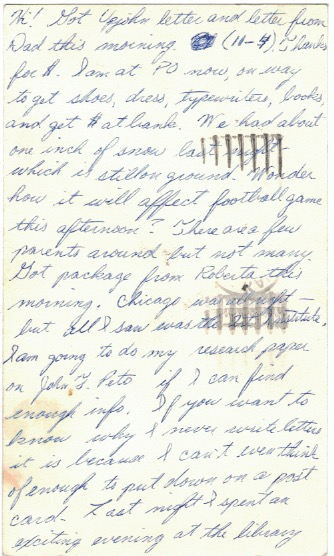 Hi! Got Upjohn letter and letter from
Dad this morning. (10-4). Thanks
for $. I am at PO now, on way
to get shoes, dress, typewriter, books
and get $ at bank. We had about
one inch of snow last night -
which is still on ground. Wonder
how it will affect football game
this afternoon? There are a few
parents around but not many.
Got package from Roberta this
morning. Chicago was all right —
but all I saw was the Art Institute.
I am going to do my research paper
on John F. Peto if I can find
enough info. If you want to
know why I never write letters
it is because I can't even think
of enough to put down on a post
card. Last night I spent an
exciting evening at the library